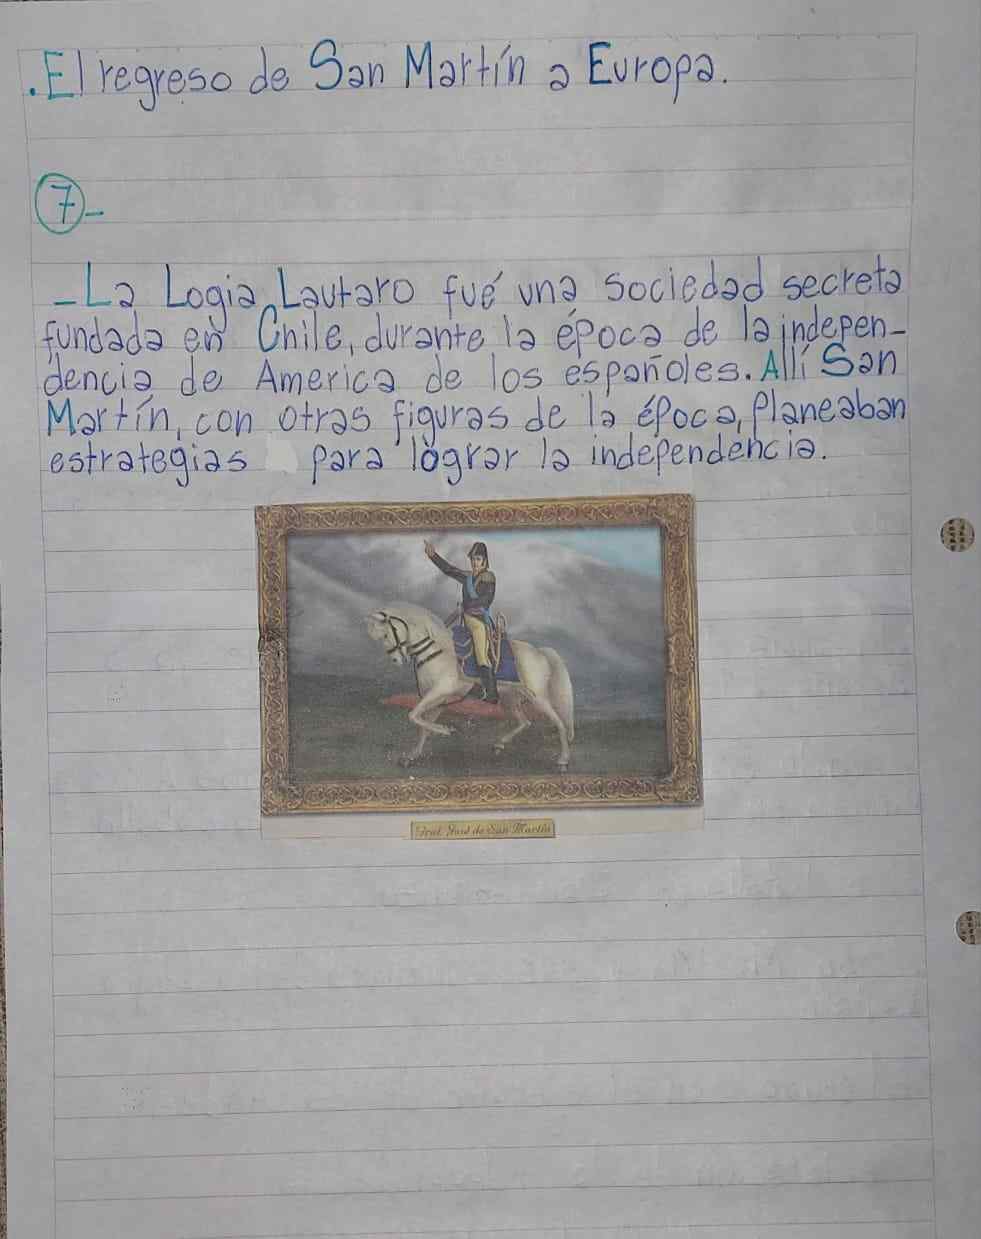 .El regreso de San Martín a Europa.
7-
-La Logia Lautaro fué una sociedad secreta
fundada en Chile, durante la época de la indepen-
dencia de America de los españoles. Allí San
Martín, con otras figuras de la época, planeaban
estrategias para lograr la independencia.
Gral. José de San Martín